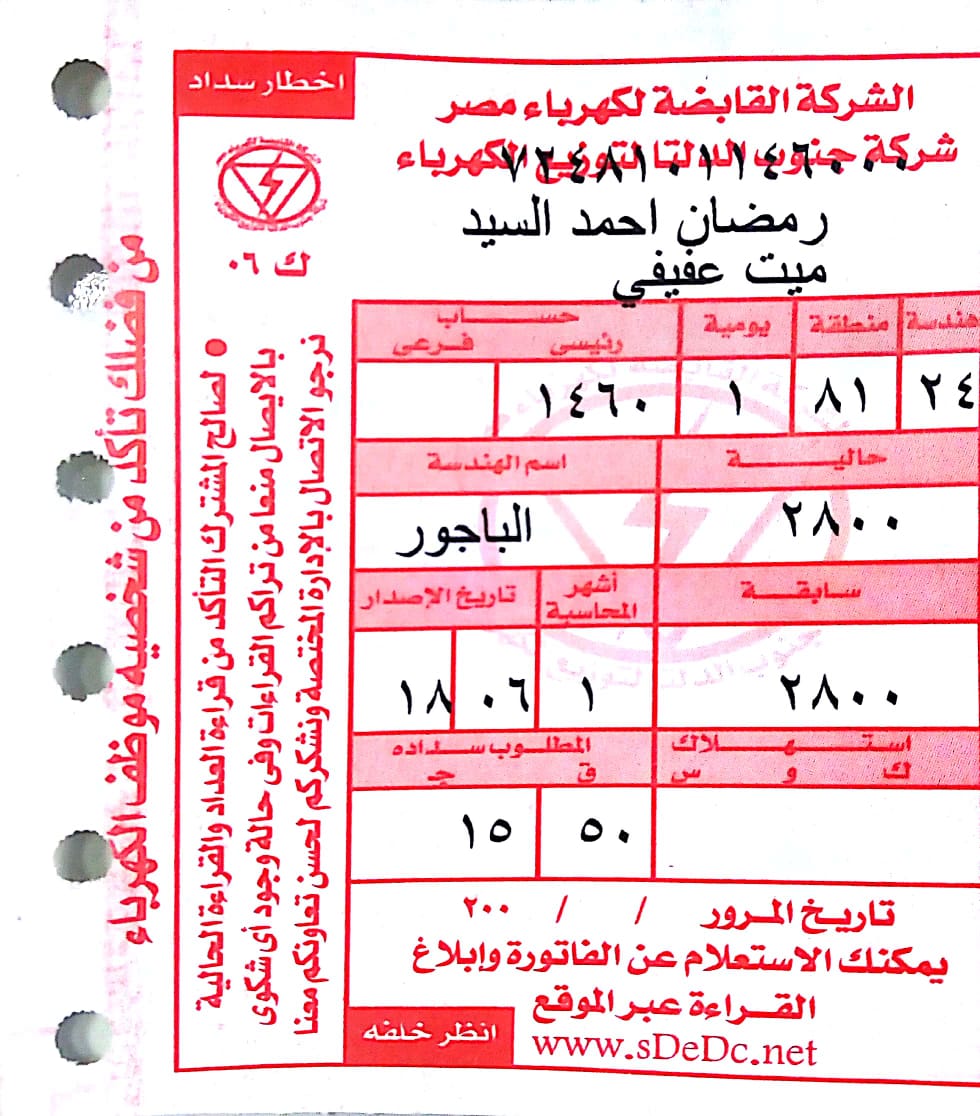 اخطار سداد
الشركة القابضة لكهرباء مصر
شركة جنوب الدلتا لتوزيع الكهرباء
٧٢٤٨١٠١١٤٦٠٠٠
رمضان احمد السيد
ميت عفيفي
ك ٠٦
هندسة منطقة يومية حساب
رئيسى فرعى
٢٤ ٨١ ١ ١٤٦٠
حالية اسم الهندسة
٢٨٠٠ الباجور
سابقة أشهر المحاسبة تاريخ الإصدار
٢٨٠٠ ١ ٠٦ ١٨
استهلاك المطلوب سداده
ك و س ق ج
٥٠ ١٥
تاريخ المرور / / ٢٠٠
يمكنك الاستعلام عن الفاتورة وإبلاغ
القراءة عبر الموقع
www.sDeDc.net
انظر خلفه
● لصالح المشترك التأكد من قراءة العداد والقراءة الحالية
بالايصال منعا من تراكم القراءات وفى حالة وجود أى شكوى
نرجو الاتصال بالإدارة المختصة ونشكركم لحسن تعاونكم معنا
من فضلك تأكد من شخصيه موظف الكهرباء